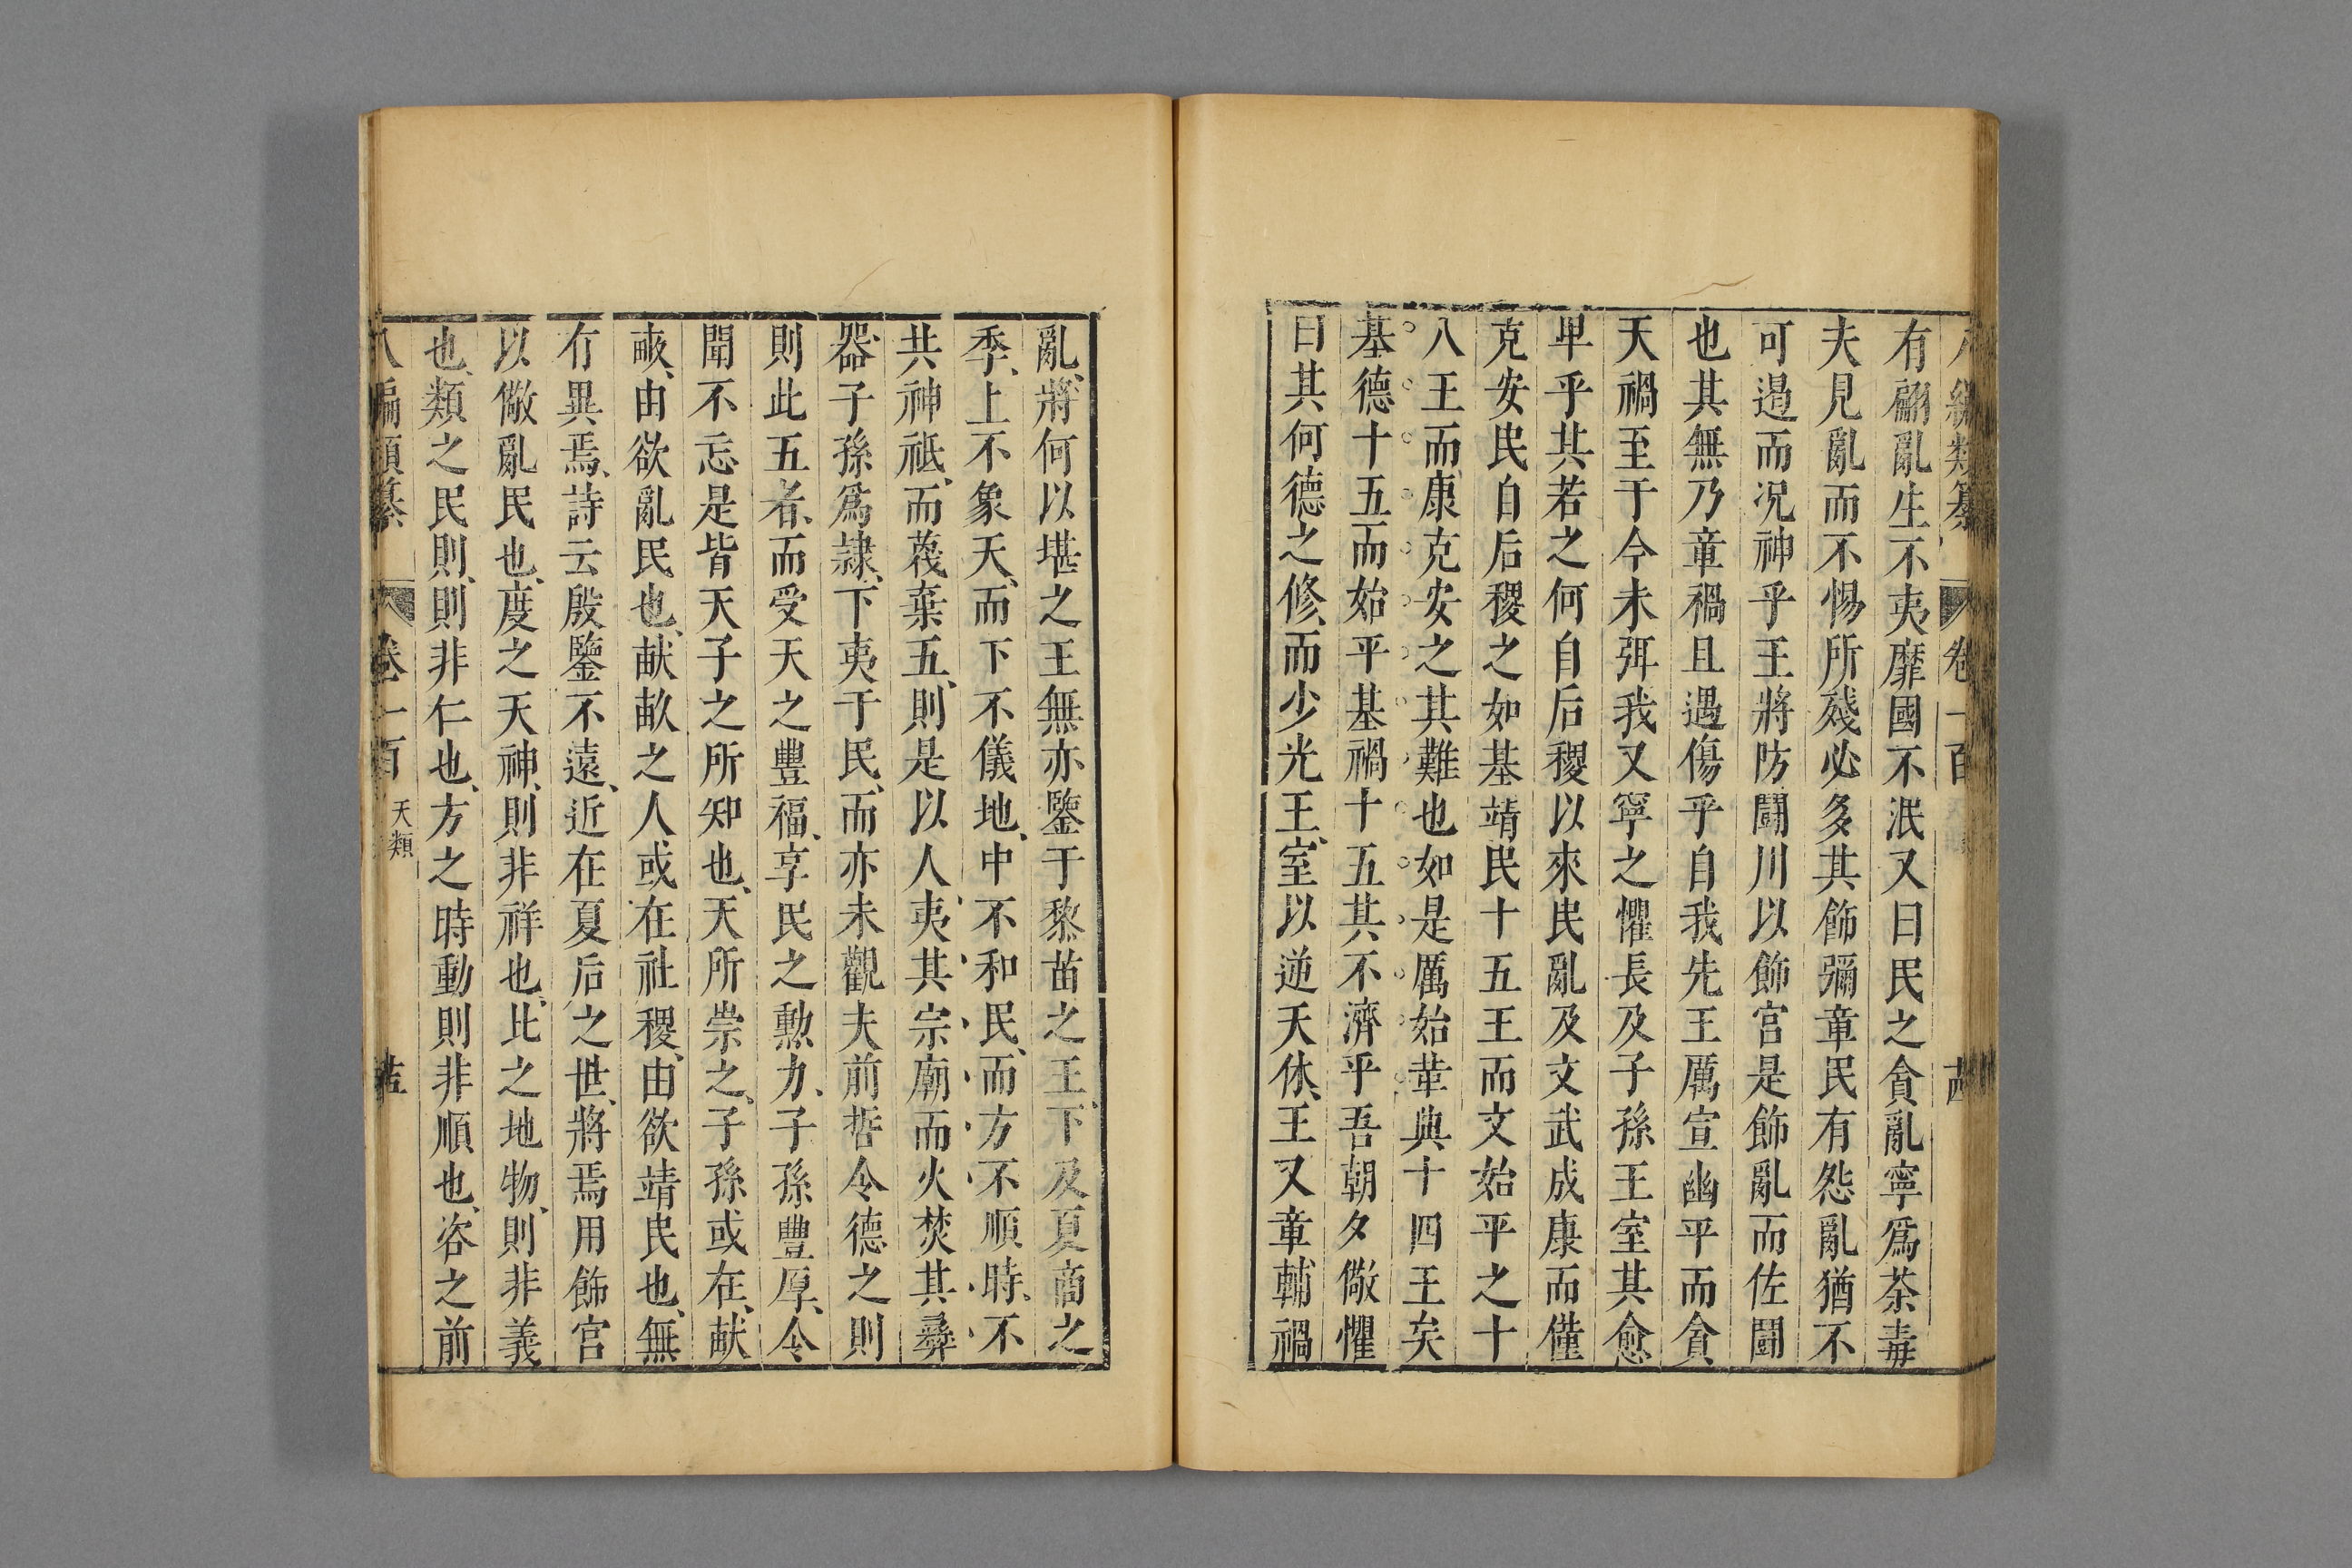 八編類纂 卷一百 十四
有翩亂生不夷靡國不泯又曰民之貪亂寧爲荼毒
夫見亂而不惕所殘必多其飾彌章民有怨亂猶不
可遏而况神乎王將防鬬川以飾宫是飾亂而佐鬬
也其無乃章禍且遇傷乎自我先王厲宣幽平而貪
天禍至于今未弭我又寧之懼長及子孫王室其愈
卑乎其若之何自后稷以來民亂及文武成康而僅
克安民自后稷之如基靖民十五王而文始平之十
八王而康克安之其難也如是厲始革典十四王矣
基德十五而始平基禍十五其不濟乎吾朝夕儆懼
曰其何德之修而少光王室以逆天休王又章輔禍
亂將何以堪之王無亦鑒于黎苗之王下及夏商之
季上不象天而下不儀地中不和民而方不順時不
共神祇而蔑棄五則是以人夷其宗廟而火焚其彝
器子孫爲隷下夷于民而亦未觀夫前哲令德之則
則此五者而受天之豐福享民之勲力子孫豐厚令
聞不忘是皆天子之所知也天所崇之子孫或在畎
畝由欲亂民也畎畝之人或在社稷由欲靖民也無
有異焉詩云殷鑒不遠近在夏后之世將焉用飾宫
以儆亂民也度之天神則非祥也比之地物則非義
也類之民則則非仁也方之時動則非順也咨之前
八編類纂 卷一百 天類 十五